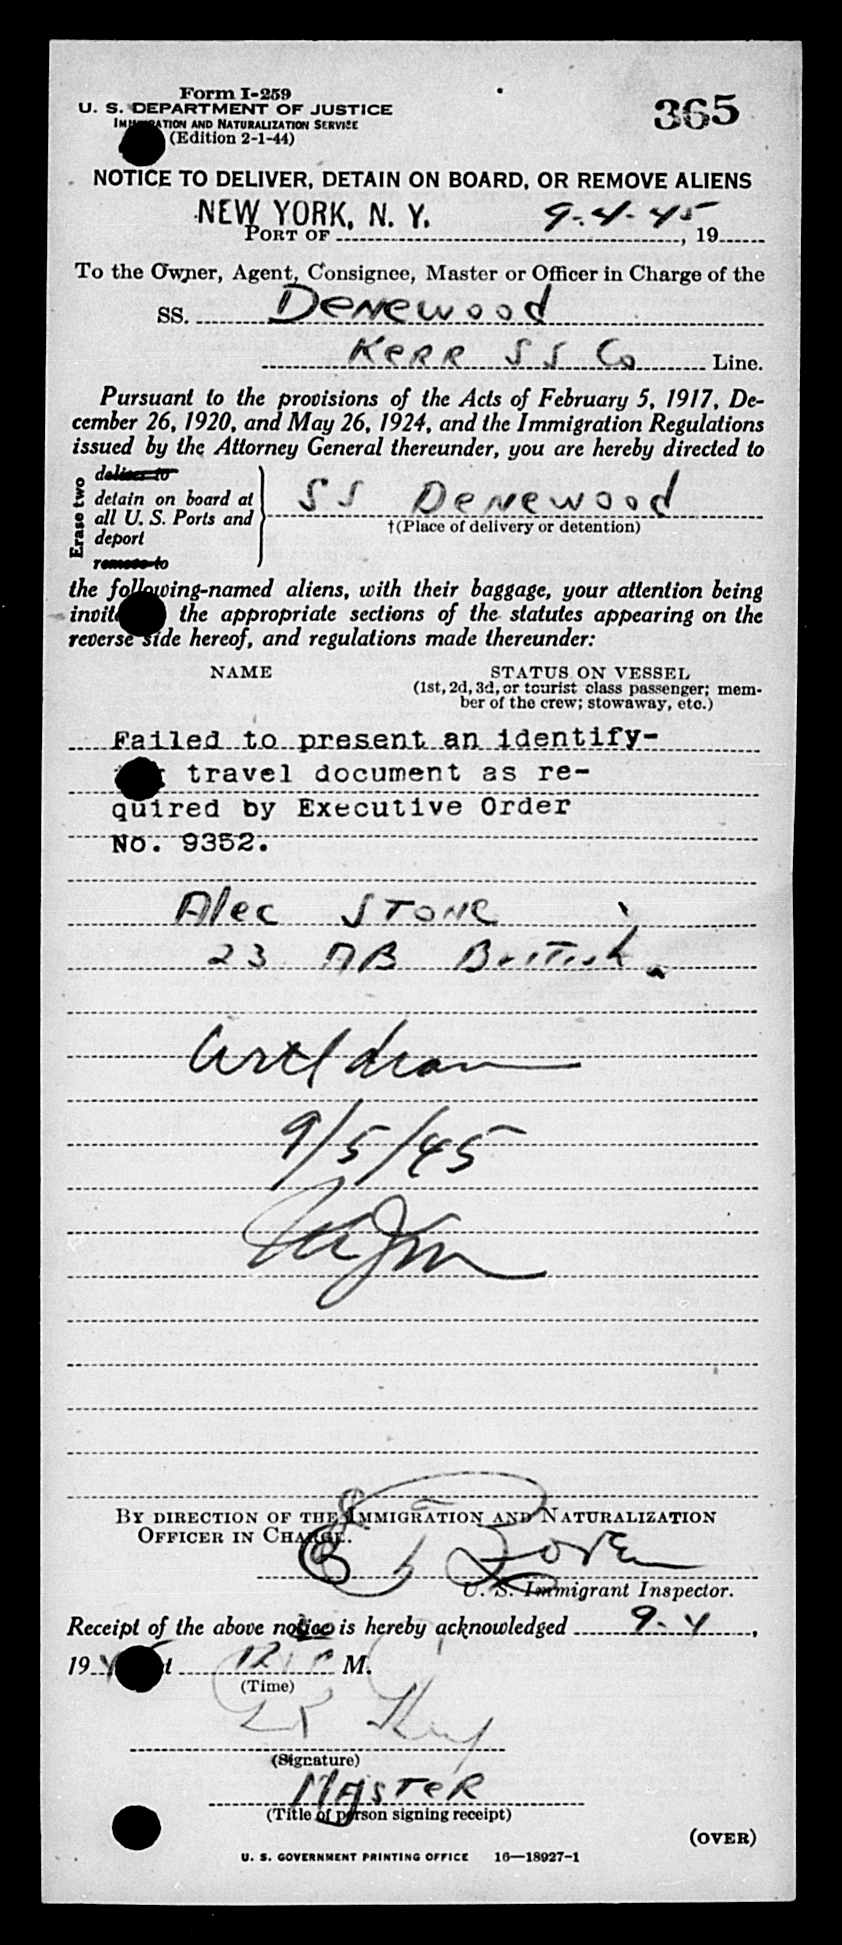 Form I-259
U. S. DEPARTMENT OF JUSTICE
IMMIGRATION AND NATURALIZATION SERVICE
(Edition 2-1-44)
365
NOTICE TO DELIVER, DETAIN ON BOARD, OR REMOVE ALIENS
NEW YORK, N. Y. 9-4-45
PORT OF , 19
To the Owner, Agent, Consignee, Master or Officer in Charge of the
SS. Denewood
Kerr S S Co Line.
Pursuant to the provisions of the Acts of February 5, 1917, De-
cember 26, 1920, and May 26, 1924, and the Immigration Regulations
issued by the Attorney General thereunder, you are hereby directed to
Erase two
deliver to
detain on board at
all U. S. Ports and
deport
remove to
SS Denewood
†(Place of delivery or detention)
the following-named aliens, with their baggage, your attention being
invit the appropriate sections of the statutes appearing on the
reverse side hereof, and regulations made thereunder:
NAME STATUS ON VESSEL
(1st, 2d, 3d, or tourist class passenger; mem-
ber of the crew; stowaway, etc.)
Failed to present an identify-
travel document as re-
quired by Executive Order
No. 9352.
Alec Stone
23 AB British
9/5/45
BY DIRECTION OF THE IMMIGRATION AND NATURALIZATION
OFFICER IN CHARGE.
U. S. Immigrant Inspector.
Receipt of the above notice is hereby acknowledged 9-4,
19 45 t 12 M.
(Time)
(Signature)
Master
(Title of person signing receipt)
(OVER)
U. S. GOVERNMENT PRINTING OFFICE 16—18927-1